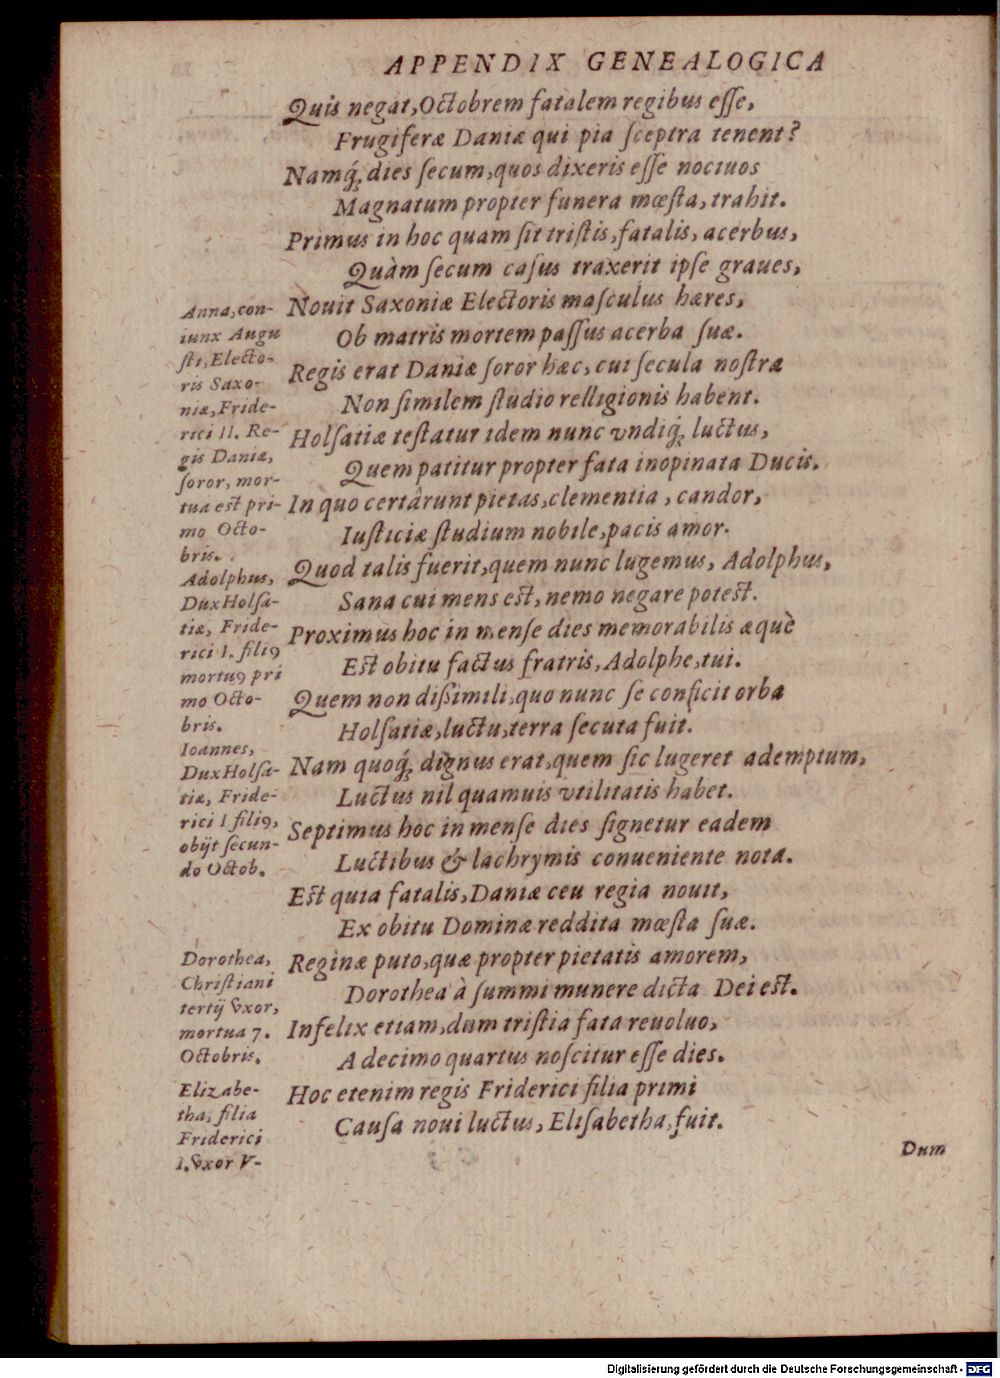 APPENDIX GENEALOGICA
Quis negat, Octobrem fatalem regibus esse,
Frugiferæ Daniæ qui pia sceptra tenent?
Namq́; dies secum, quos dixeris esse nociuos
Magnatum propter funera mœsta, trahit.
Primus in hoc quam sit tristis, fatalis, acerbus,
Quàm secum casus traxerit ipse graues,
Nouit Saxoniæ Electoris masculus hæres,
Ob matris mortem passus acerba suæ.
Regis erat Daniæ soror hæc, cui secula nostra
Non similem studio relligionis habent.
Holsatiæ testatur idem nunc vndiq́; luctus,
Quem patitur propter fata inopinata Ducis.
In quo certârunt pietas, clementia, candor,
Iusticiæ studium nobile, pacis amor.
Quod talis fuerit, quem nunc lugemus, Adolphus,
Sana cui mens est, nemo negare potest.
Proximus hoc in mense dies memorabilis æquè
Est obitu factus fratris, Adolphe, tui.
Quem non dissimili, quo nunc se conficit orba
Holsatiæ, luctu, terra secuta fuit.
Nam quoq́; dignus erat, quem sic lugeret ademptum,
Luctus nil quamuis vtilitatis habet.
Septimus hoc in mense dies signetur eadem
Luctibus & lachrymis conueniente nota.
Est quia fatalis, Daniæ ceu regia nouit,
Ex obitu Dominæ reddita mœsta suæ.
Reginæ puto, quæ propter pietatis amorem,
Dorothea à summi munere dicta Dei est.
Infelix etiam, dum tristia fata reuoluo,
A decimo quartus noscitur esse dies.
Hoc etenim regis Friderici filia primi
Causa noui luctus, Elisabetha, fuit.
Dum
Anna, con-
iunx Augu
sti, Electo-
ris Saxo-
niæ, Fride-
rici II. Re-
gis Daniæ,
soror, mor-
tua est pri-
mo Octo-
bris.
Adolphus,
Dux Holsa-
tiæ, Fride-
rici I. filiꝰ
mortuꝰ pri
mo Octo-
bris.
Ioannes,
Dux Holsa-
tiæ, Fride-
rici I filiꝰ,
obijt secun-
do Octob.
Dorothea,
Christiani
tertij vxor,
mortua 7.
Octobris.
Elizabe-
tha, filia
Friderici
I. vxor V-
Digitalisierung gefördert durch die Deutsche Forschungsgemeinschaft - DFG